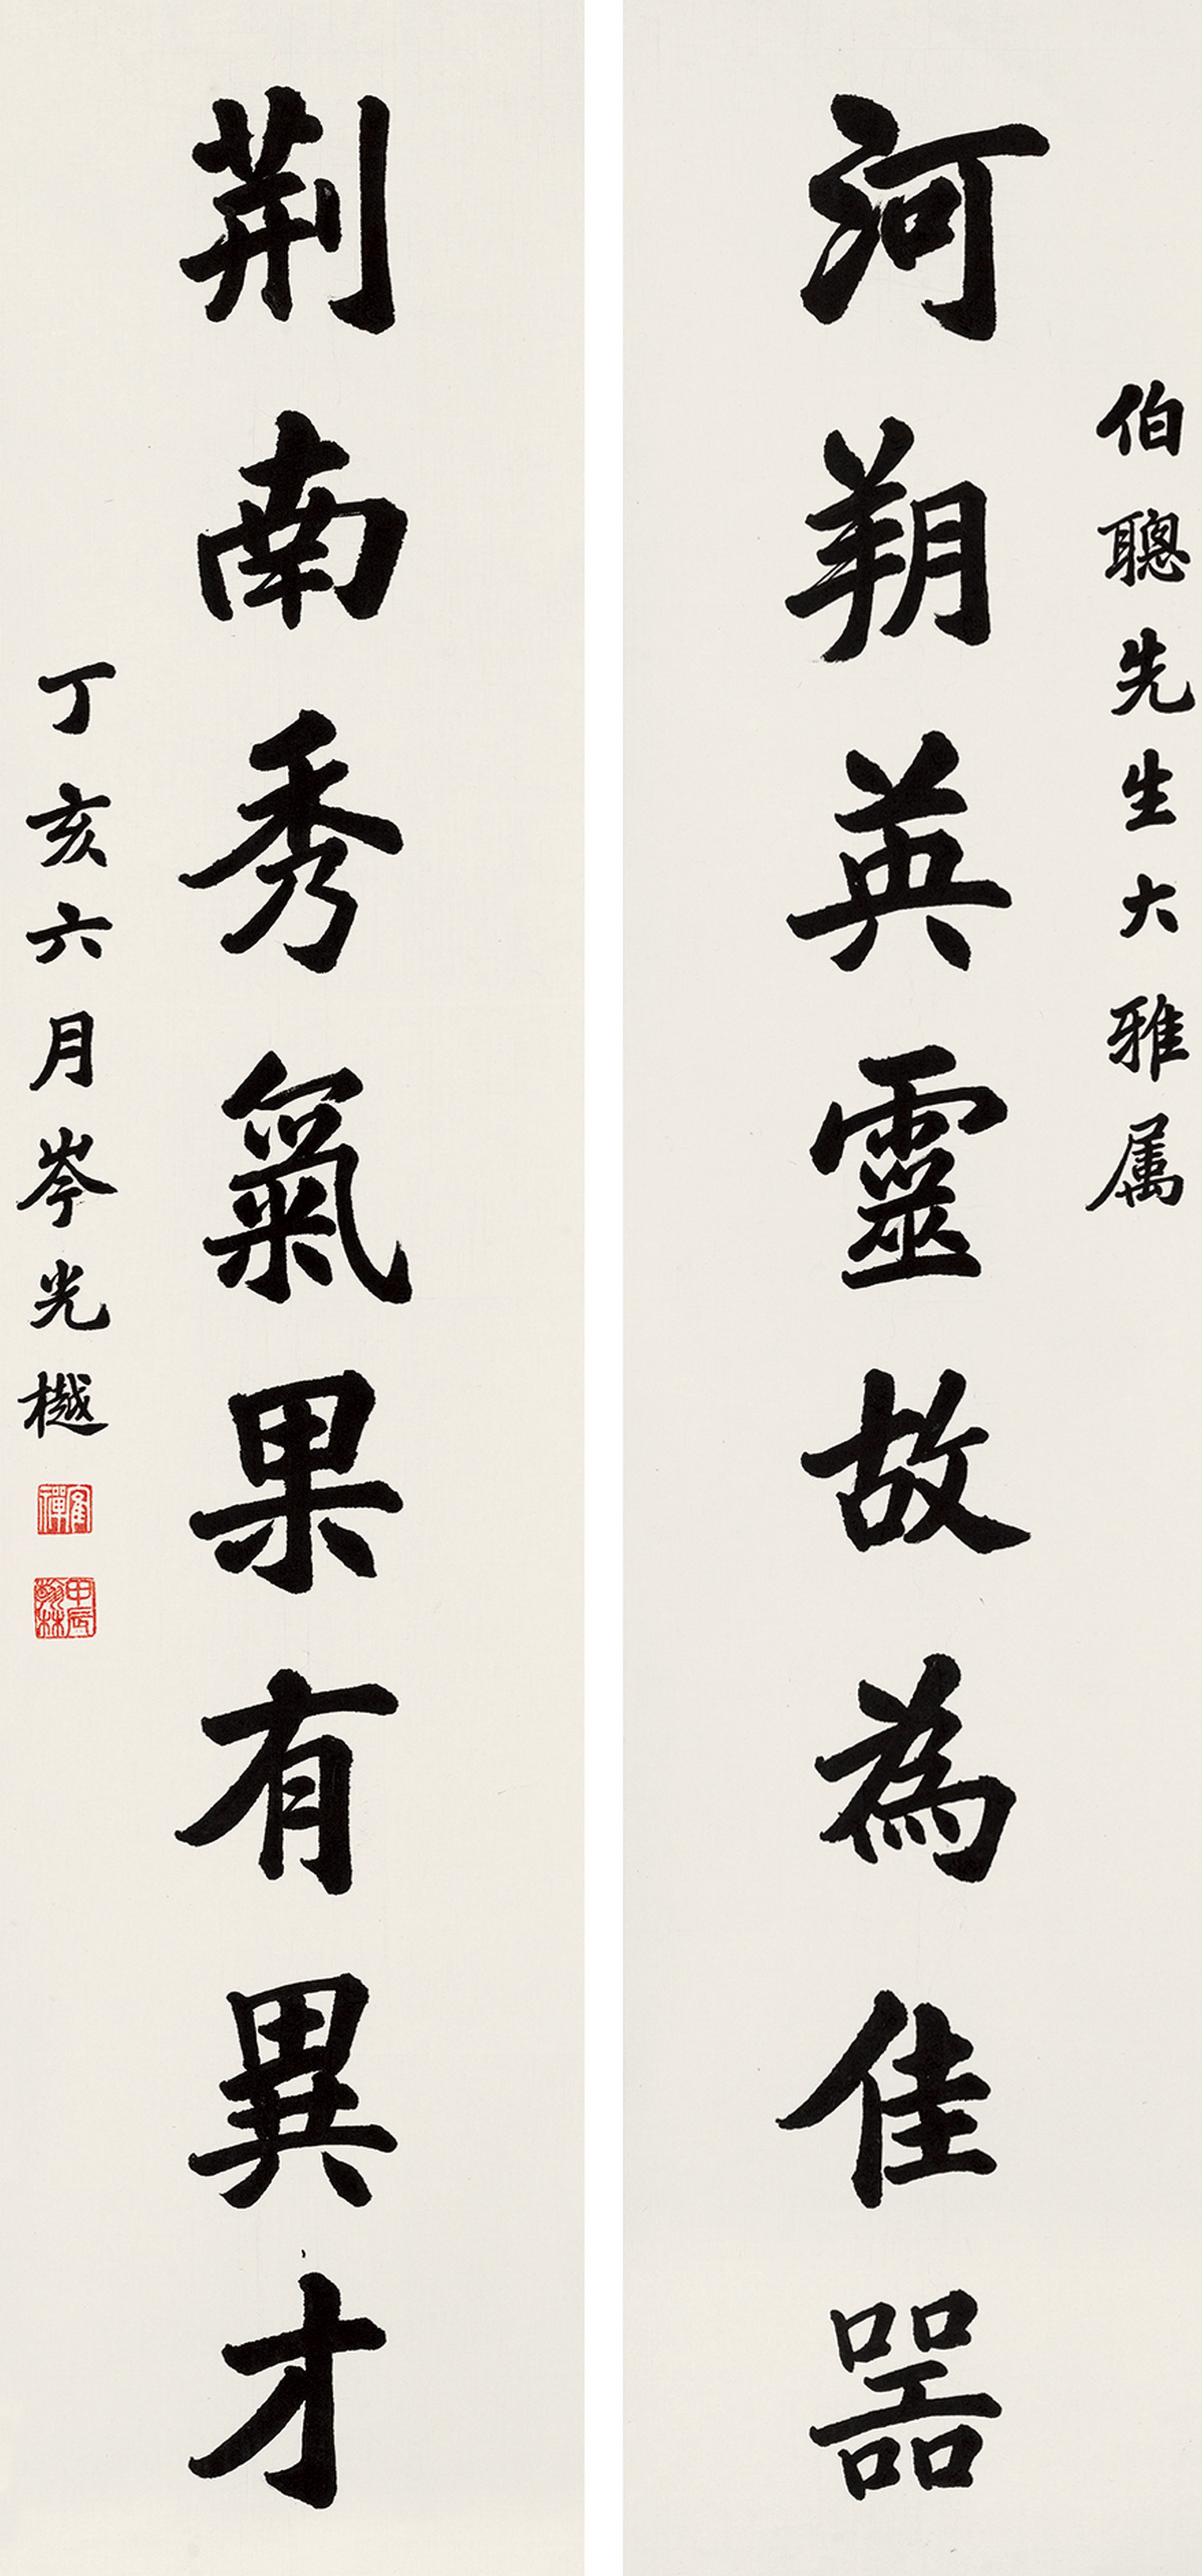 伯聰先生大雅属
河朔英靈故為佳器
荆南秀氣果有異才
丁亥六月岑光樾
甲辰翰林